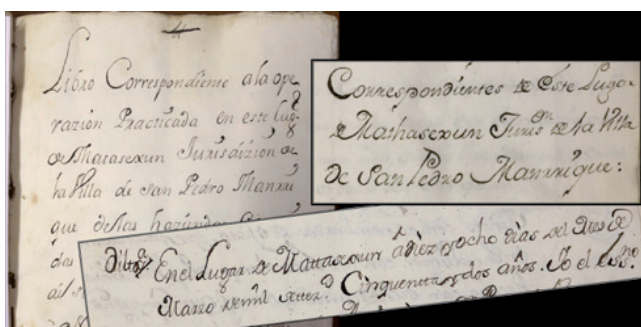 Libro Correspondiente a la ope
razion Practicada en este Lugr
de Matasexun Jurisdizion de
la Villa de San Pedro Manrri
que de las haziendas
das
Correspondientes de este Luga.
de Mathasexun Jurison de la Villa
De San Pedro Manrrique:
En el Lugar de Mattasexun â diez y ocho dias del Mes de
Marzo de mil settezs Cinquenta y dos años. Yo el essno